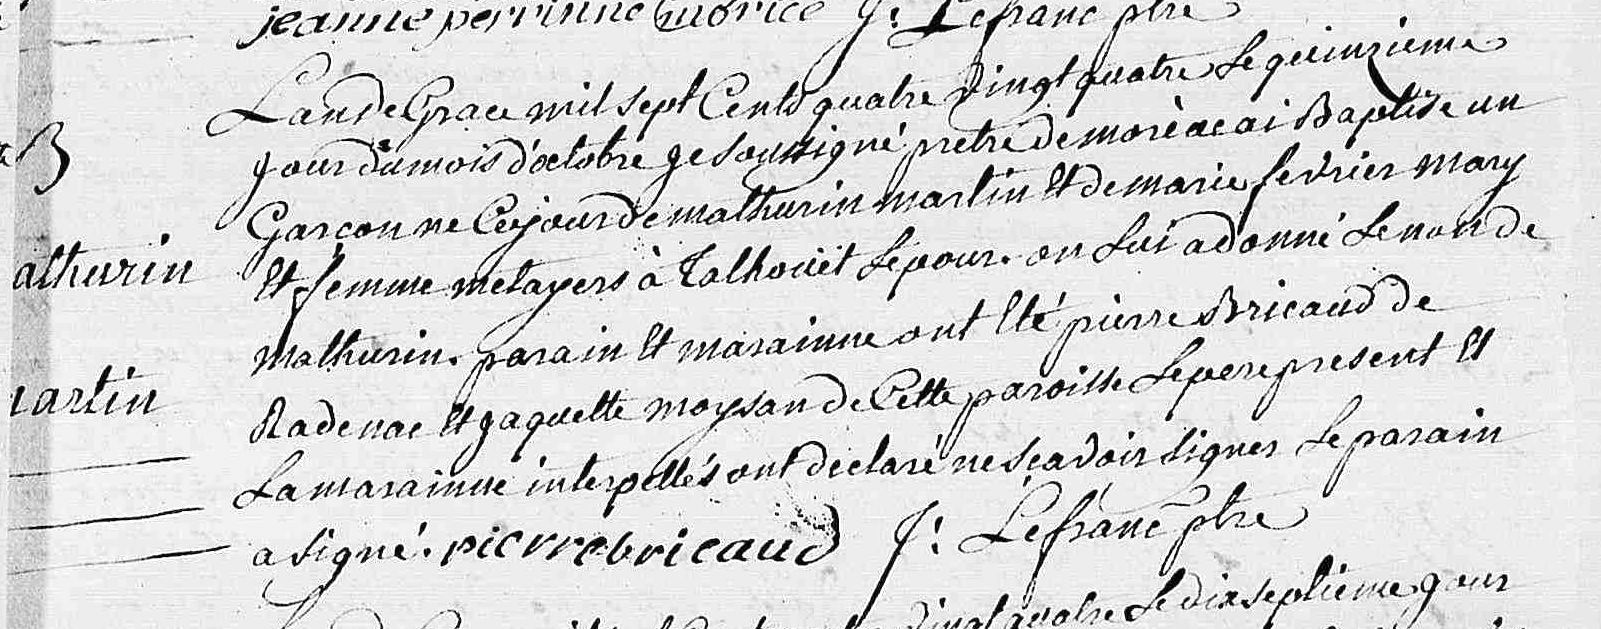 jeanne perrinne morice J. Lefranc ptre
L'an de Grace mil sept Cents quatre vingt quatre Le quinzieme
B
jour du mois d'octobre je soussigné pretre de moréac ai Baptisé un
Garcon né Ce jour de mathurin martin Et de marie fevrier mary
athurin
Et femme metayers à Talhoüët Lepour. on Lui a donné Le nom de
mathurin. parain Et marainne ont Eté pierre Bricaud de
artin
Radenac Et jaquette moysan de Cette paroisse Le pere present Et
La marainne interpellés ont declaré ne scavoir signer Le parain
a signé. pierre bricaud J. Lefranc ptre
vingt quatre Le dix septieme jour